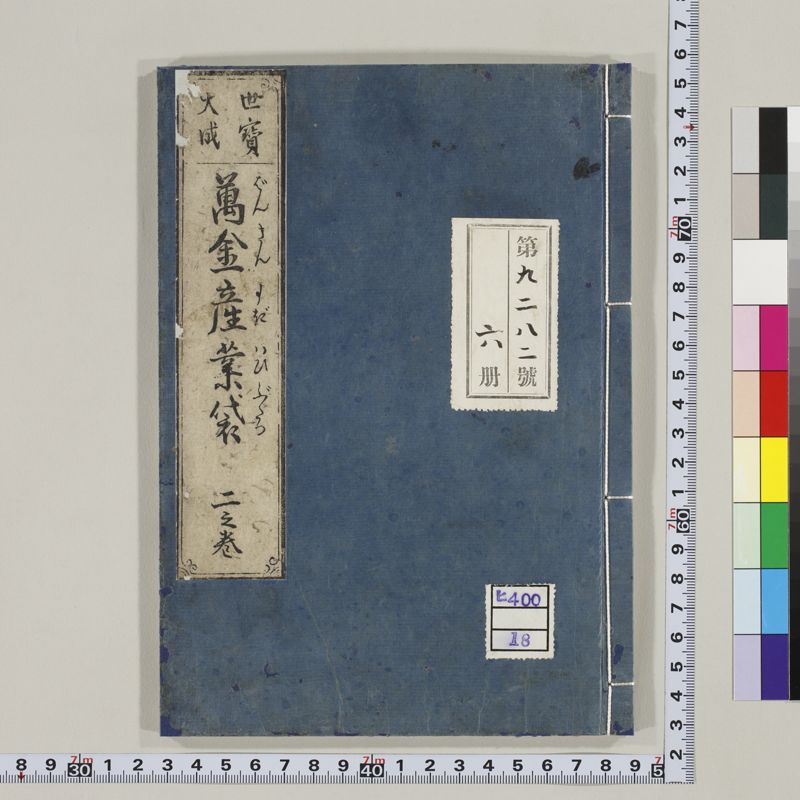 世寶
大成
萬金産業袋 二之巻
ばんきんすぎはひぶくろ
第九二八二號
六册
ヒ400
18
7 6 5 4 3 2 1 70 9 8 7 6 5 4 3 2 1 60 9 8 7 6 5 4 3 2
8 9 30 1 2 3 4 5 6 7 8 9 40 1 2 3 4 5 6 7 8 9 5